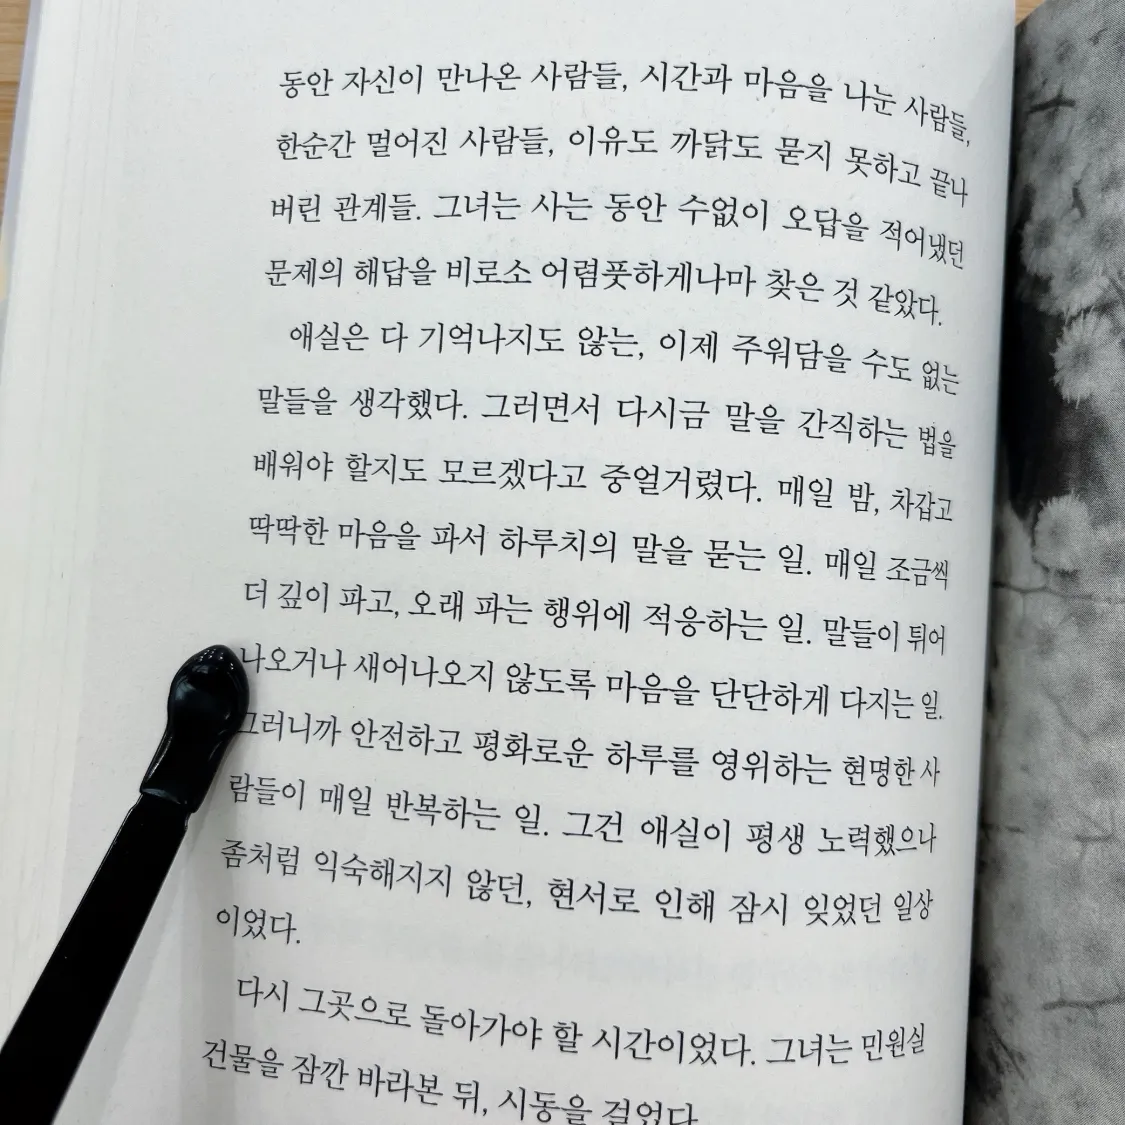 동안 자신이 만나온 사람들, 시간과 마음을 나눈 사람들,
한순간 멀어진 사람들, 이유도 까닭도 묻지 못하고 끝나
버린 관계들. 그녀는 사는 동안 수없이 오답을 적어냈던
문제의 해답을 비로소 어렴풋하게나마 찾은 것 같았다.
애실은 다 기억나지도 않는, 이제 주워담을 수도 없는
말들을 생각했다. 그러면서 다시금 말을 간직하는 법을
배워야 할지도 모르겠다고 중얼거렸다. 매일 밤, 차갑고
딱딱한 마음을 파서 하루치의 말을 묻는 일. 매일 조금씩
더 깊이 파고, 오래 파는 행위에 적응하는 일. 말들이 튀어
나오거나 새어나오지 않도록 마음을 단단하게 다지는 일.
그러니까 안전하고 평화로운 하루를 영위하는 현명한 사
람들이 매일 반복하는 일. 그건 애실이 평생 노력했으나
좀처럼 익숙해지지 않던, 현서로 인해 잠시 잊었던 일상
이었다.
다시 그곳으로 돌아가야 할 시간이었다. 그녀는 민원실
건물을 잠깐 바라본 뒤, 시동을 걸었다.